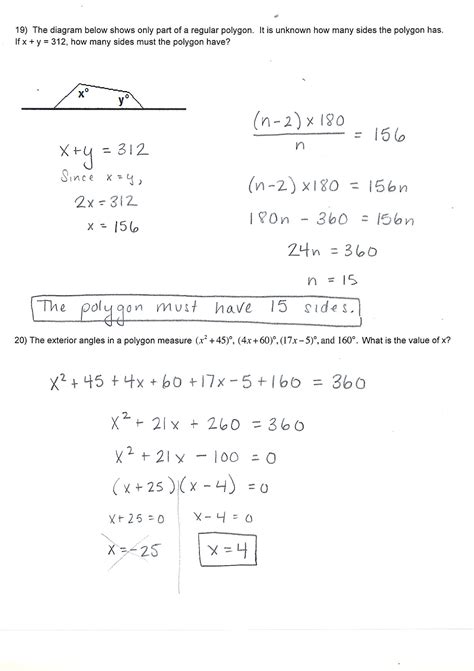 19) The diagram below shows only part of a regular polygon. It is unknown how many sides the polygon has.
If x + y = 312, how many sides must the polygon have?
x°
y°
x+y = 312
Since x = y,
2x = 312
x = 156
(n-2) × 180 / n = 156
(n-2) × 180 = 156n
180n - 360 = 156n
24n = 360
n = 15
The polygon must have 15 sides.
20) The exterior angles in a polygon measure (x² + 45)°, (4x + 60)°, (17x – 5)°, and 160°. What is the value of x?
x² + 45 + 4x + 60 + 17x - 5 + 160 = 360
x² + 21x + 260 = 360
x² + 21x - 100 = 0
(x + 25)(x - 4) = 0
x + 25 = 0 x - 4 = 0
x = -25 x = 4